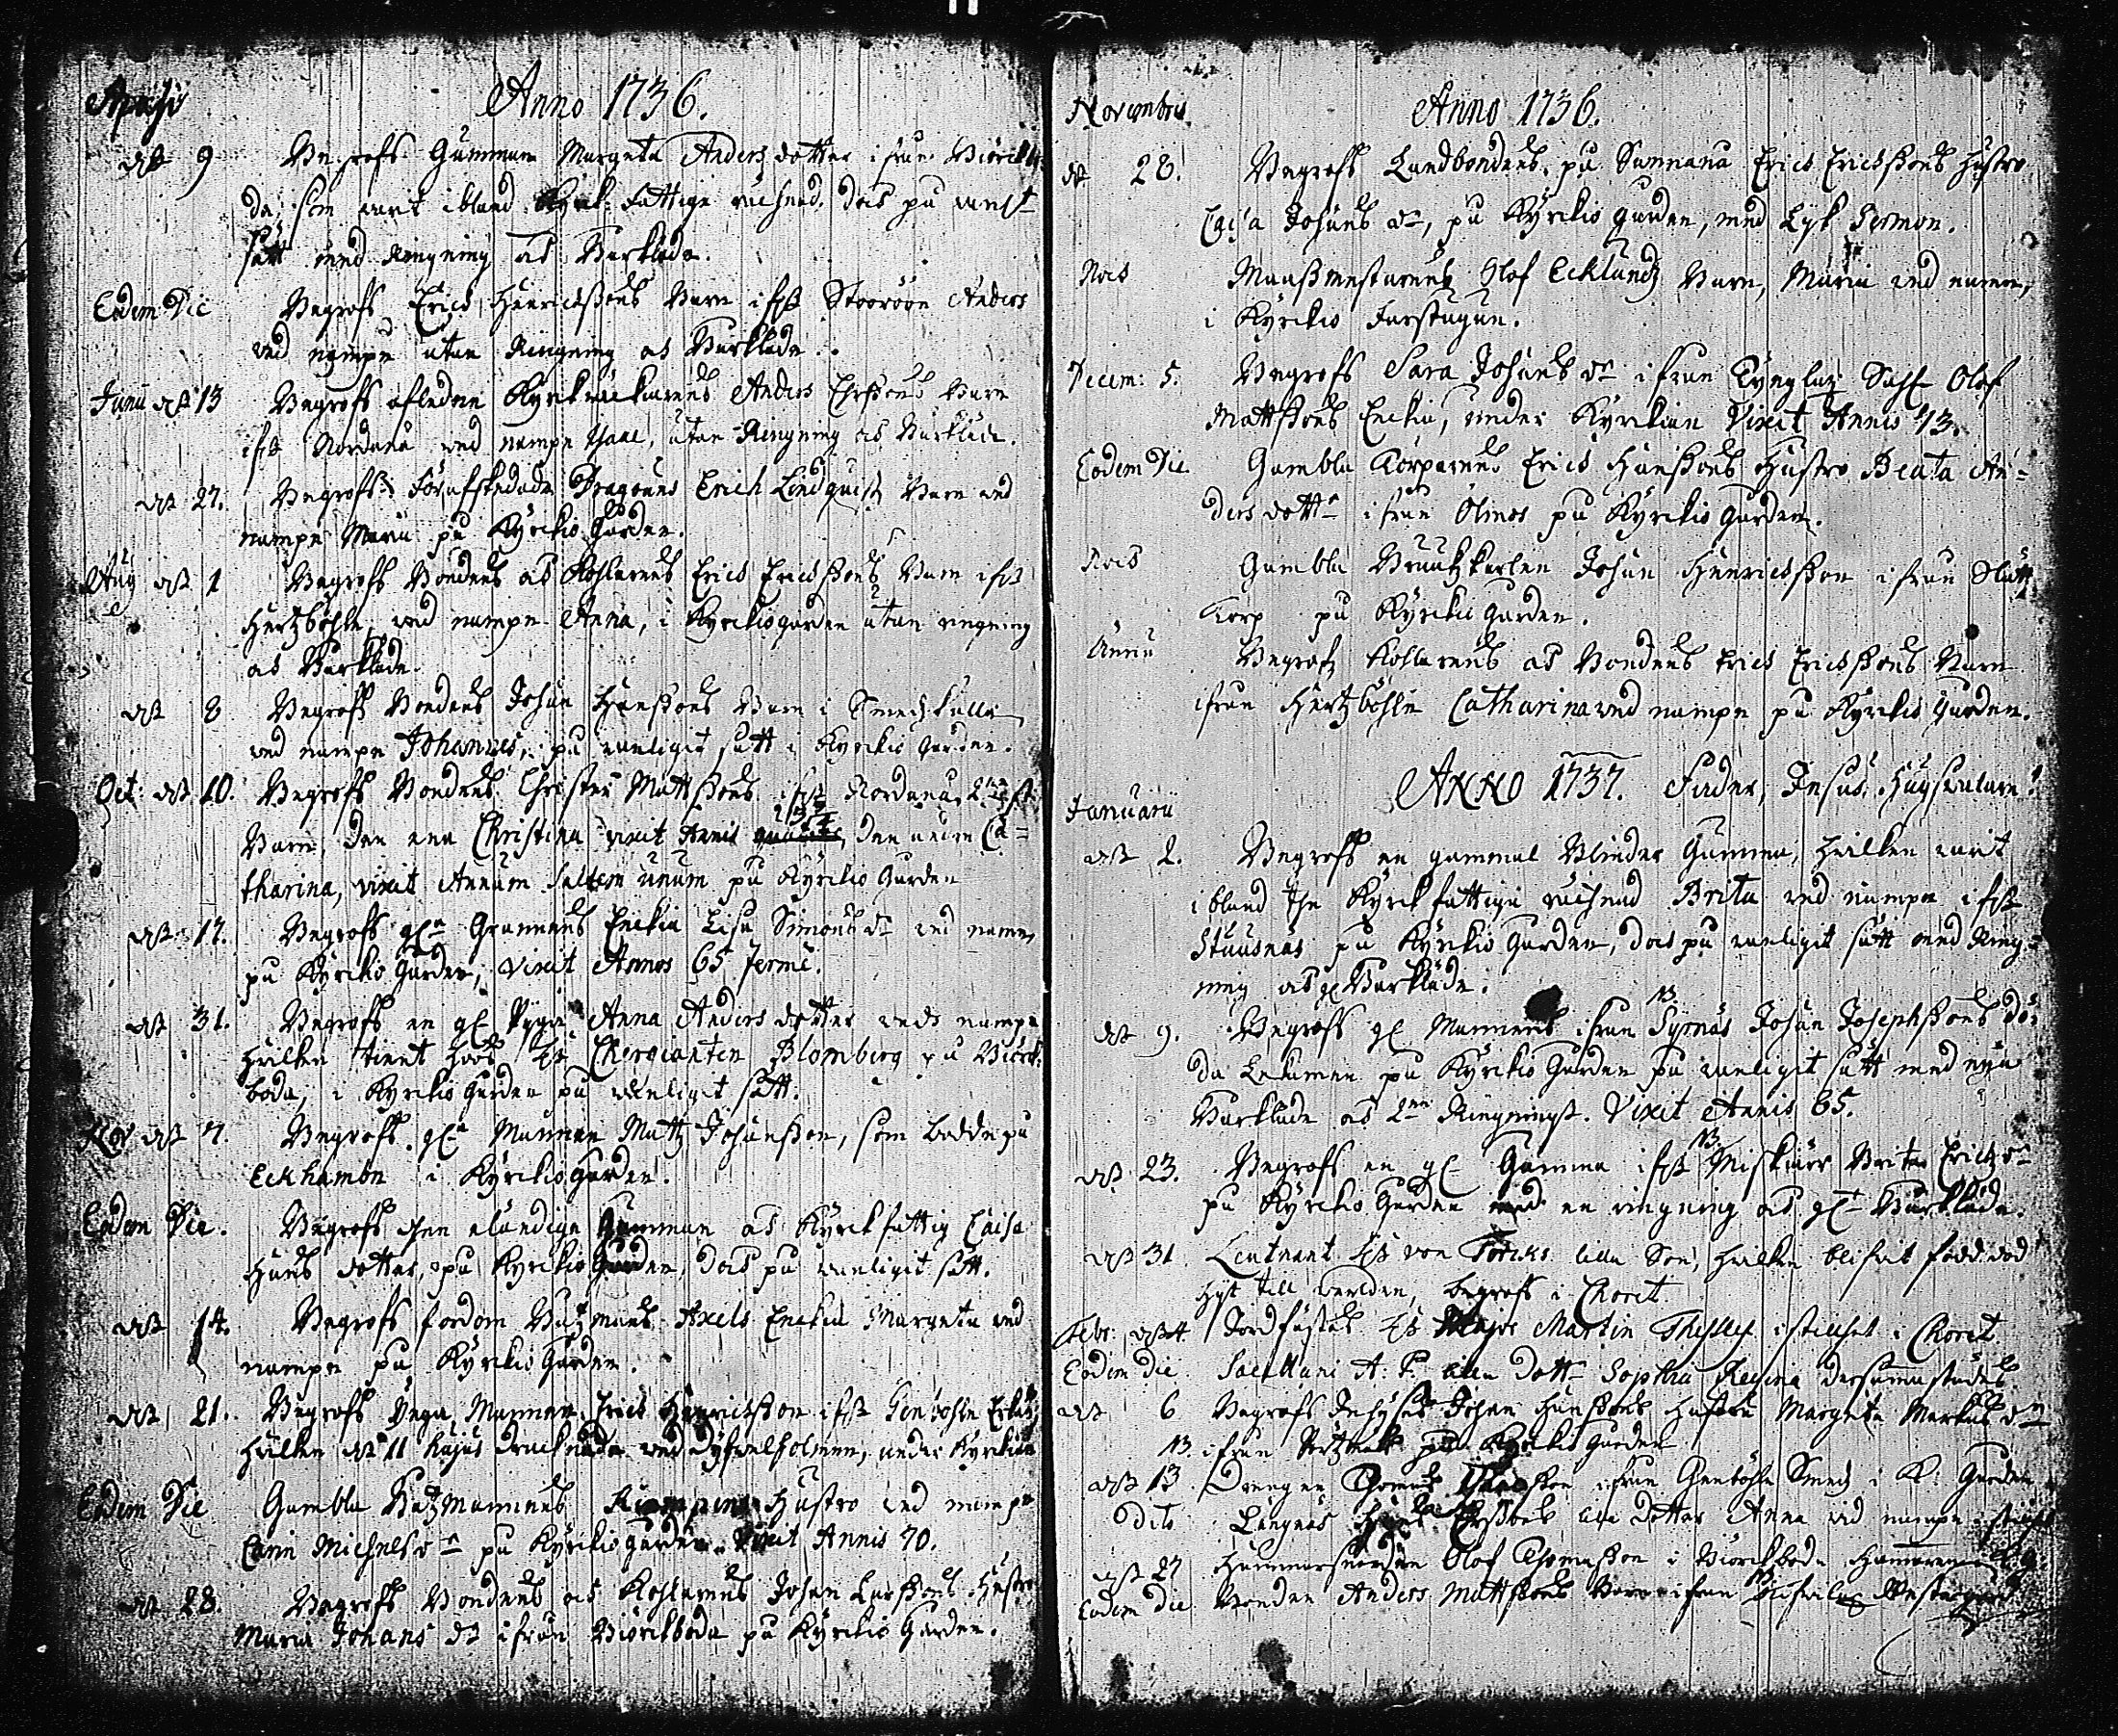 Aprilis Anno 1736.
dst 9 Begrofs Gumman Margeta Andersdotter ifrån Biörckbo-
da, som varit ibland Kyrk: Fattige räcknad, docs på vanl:t
sätt med Ringning och Barkläde.
Eodem Die Begrofs Erich Henrichssons Barn ifrå Storöön Anders
ved nampn utan Ringning och Barkläde.
Junii dst 13 Begrofs afledne Kyrkväcktarens Anders Ersssons Barn
ifrå Nordanå ved nampn Isaac, utan Ringning och Barkläde.
dst 27. Begrofs Förafskedade Dragouns Erich Lindquistz Barn ved
nampn Maria på Kyrckio Gården.
Aug dst 1 Begrofs Bondens och Kohlarens Erich Erichssons Barn ifrå
Hertzböhle, ved nampn Anna, i Kyrckiogården utan ringning
och Barkläde.
dst 8 Begrofs Bondens Johan Hanssons Barn i Smedzkulla
ved nampn Johannes, på vanligit sätt i Kyrckio Gården.
Oct: dst 10. Begrofs Bondens Christer Mattssons ifrå Nordanå 2
Barn, den ena Christina vixit Annis den andra Ca-
tharina, vixit Annum Saltem unum på Kyrckio Gården
dst 17. Begrofs gl:a Grannens Enckia Lisa Simons dr ved namn,
på Kyrckio Gården, vixit Annos 65 fermè.
dst 31. Begrofs en gl Pyga Anna Anders dotter veds nampn
hvilken tient hoos Hr Chergianten Blomberg på Biörck-
boda, i Kyrckio Gården på vanligit sätt.
Nov dst 7. Begrofs gl:a Mannen Matz Johansson, som bodde på
Eckhamn i Kyrckiogården.
Eodem Die. Begrofs then eländiga Gumman och Kyrckfattig Caisa
Hans dotter, på Kyrckio Gården, docs på vanligit sätt.
dst 14. Begrofs fordom Båtzmans Axels Enckia Margeta ved
nampn på Kyrckio Gården.
dst 21. Begrofs Unga Mannen Erich Henrichsson ifrå Genböhle
hvilken dn 11 hujus drucknade ved Dyfvelsholmen, under Kyrckian
Eodem Die Gambla Båtzmannens Hustro ved nampn
Carin Michels dr på Kyrckiogården. Vixit Annis 70.
dst 28. Begrofs Bondens och Kohlarens Johan Larssons Hustro
Maria Johans dr ifrån Biörckboda på Kyrckio Gården.
Novembris Anno 1736.
dst 28. Begrofs Landbondens på Sunnanå Erich Erichssons hustro
Caisa Johans dr, på Kyrckio gården, med Lyk Sermon.
Nocs Maassmestarens Olof Ecklundz Barn, Maria ved namn,
i Kyrckio Farstugan.
Decem: 5. Begrofs Sara Johans dr ifrån Olof
Mattssons Enckia, under Kyrckian Vixit Annis 73.
Eodem Die Gambla Torparens Erich Hanssons Hustro Beata An-
ders dottr ifrån Ölmos på Kyrckio Gården.
Nocs Gambla Bruutzkarlen Johan Henrichsson ifrån Slått-
torp på Kyrckio Gården.
Ännu Begrofz Kohlarens och Bondens Erich Erichssons Barn
ifrån Hertzböhle Catharina ved nampn på Kyrckio Gården.
ANNO 1737. Fader, Jesus, Hugsvalare!
Januarii
dst 2. Begrofs en gammal Blinder Gumma, hvilken varit
ibland the Kyrckfattiga räcknad Brita ved nampn ifrå
Stuusnäs på Kyrckio Gården, docs på vanligit sätt med Ring-
ning och gl Barkläde.
dst 9. Begrofs gl Mannens ifrån Syrnäs Johan Josephssons dö-
da Lekamen på Kyrckio Gården på vanligit sätt med nya
Barkläde och 2ne Ringningr. Vixit Annis 65.
dst 23. Begrofs en gl Gumma ifrå Miskärr Brita Erichz dr
på Kyrckio Gården med en ringning och gl Barkläde.
dst 31 Leutnant Hr von Torcks lilla Son, hvilken blifvit född död
hijt till verlden, begrofs i Choret
Febr: dst 4 Jordfästes Hr Major Martin Thesleff i Choret
Eodem Die Sacellani A: P. lilla Dottr Sophia Regina dersammastädes
dst 6 Begrofs Inhyses Johan Hanssons hustru Margeta Markus dr
ifrån på Kyrckio Gården
dst 13 Drengen Thomas ifrån Genböhle Smed i K: Gården
Dito Långnäs lilla Dotter Anna vid nampn
dst 27 Hammarsmeden Olof Thomasson i Biörckboda
Eodem Die Bonden Anders Mattssons Barn ifrån